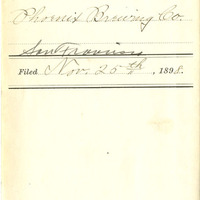 Phoenix Brewing Co.
San Francisco
Filed Nov. 25th, 1898.